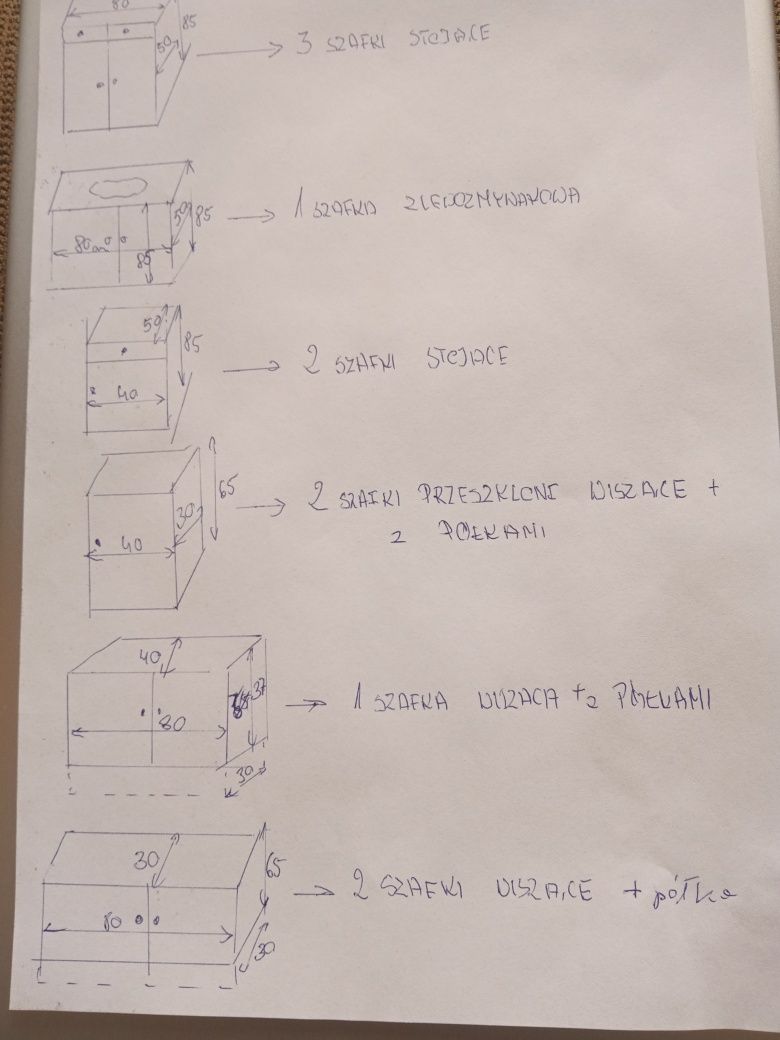 80
85
50
3 SZAFKI STOJĄCE
50
85
80
85
1 SZAFKA ZLEWOZMYWAKOWA
50
85
40
2 SZAFKI STOJĄCE
65
30
40
2 SZAFKI PRZESZKLONE WISZĄCE +
2 PÓŁKAMI
40
37
80
30
1 SZAFKA WISZĄCA +2 PÓŁKAMI
30
65
80
30
2 SZAFKI WISZĄCE + półka